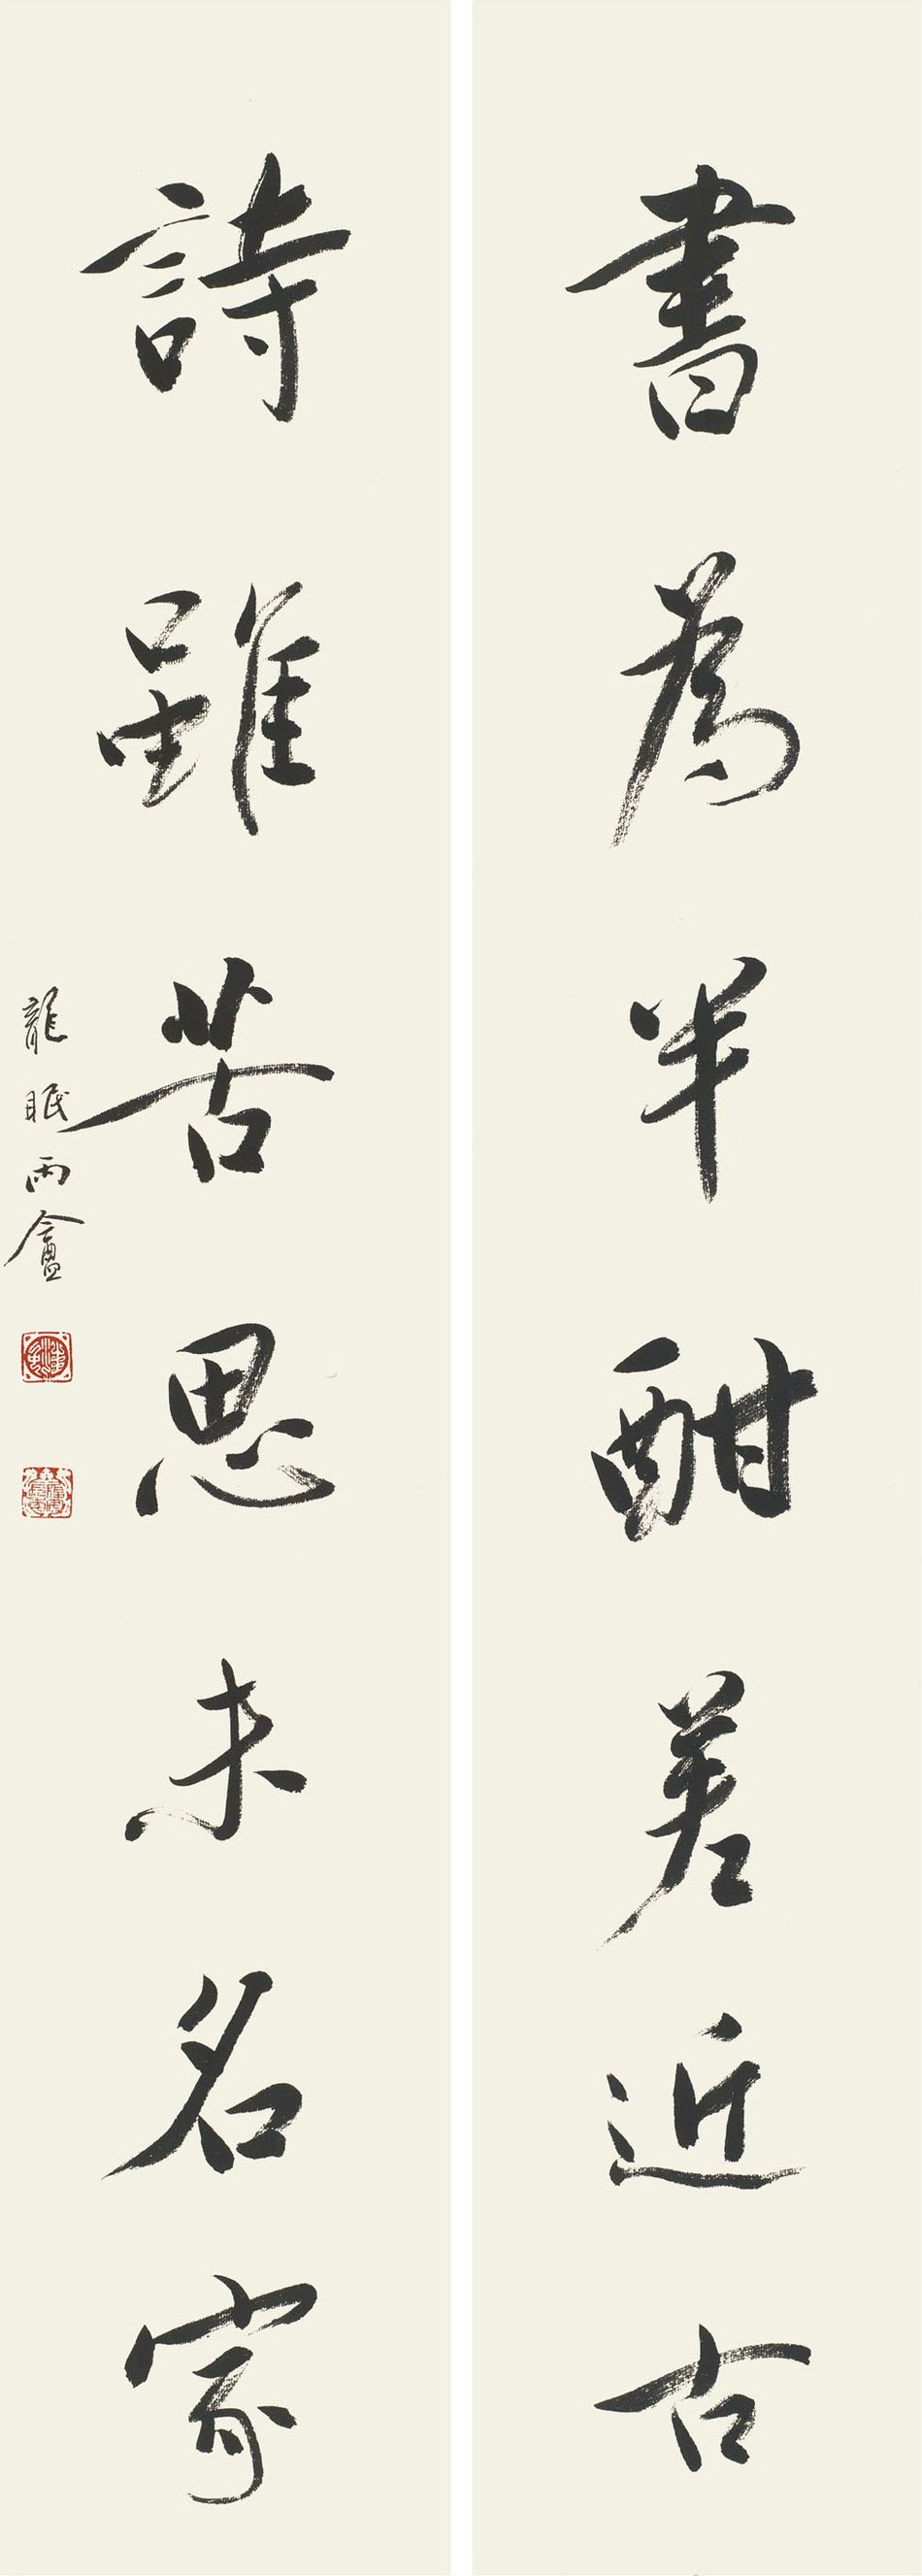 書為半酣差近古
詩雖苦思未名家
龍眠雨盦